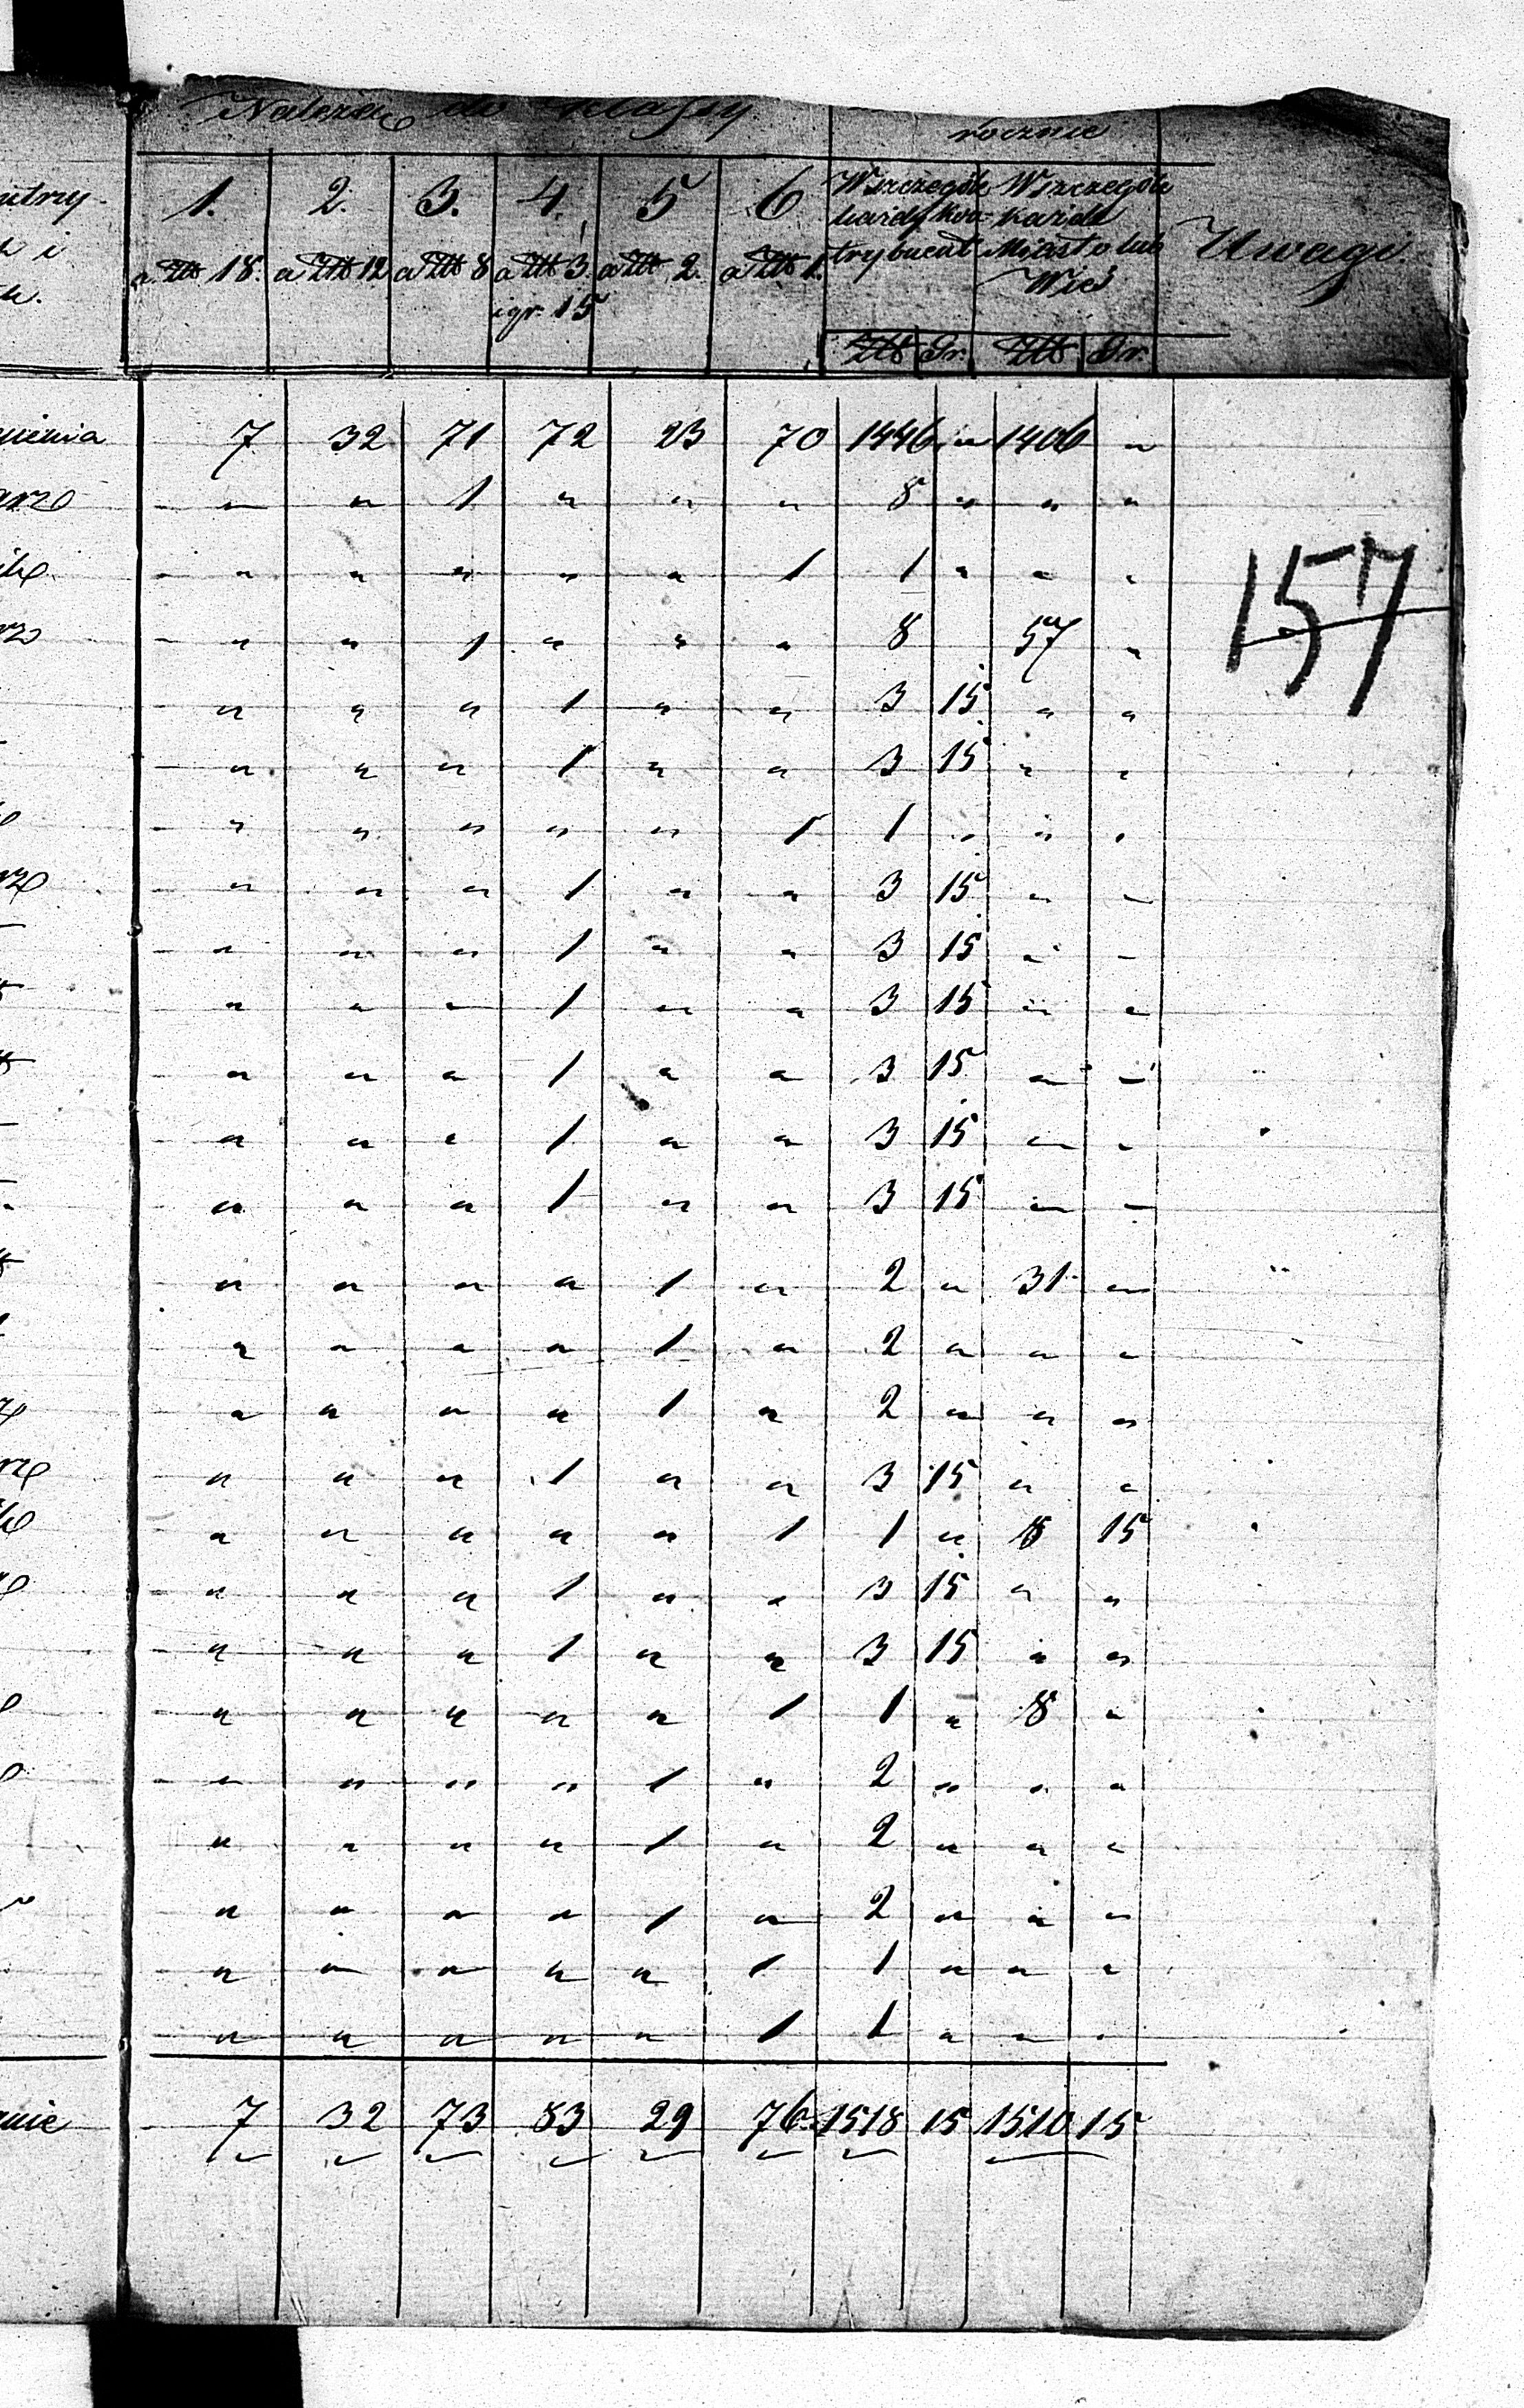 Należą do Klassy
rocznie
1. 2. 3. 4. 5 6 Wszczególe Wszczególe
każdy Kon- każde
a Złt 18. a Złt 12 a Złt 8 a Złt 3. a Złt 2. a Złt 1. trybuent Miasto lub Uwagi.
igr. 15 Wieś
Złt Gr. Złt Gr.
7 32 71 72 23 70 1446 " 1406 "
" " 1 " " " 8 " " "
" " " " " 1 1 " " "
" " 1 " " " 8 57 "
157
" " " 1 " " 3 15 " "
" " " 1 " " 3 15 " "
" " " " " 1 1 " " "
" " " 1 " " 3 15 " "
" " " 1 " " 3 15 " "
" " " 1 " " 3 15 " "
" " " 1 " " 3 15 " "
" " " 1 " " 3 15 " "
" " " 1 " " 3 15 " "
" " " " 1 " 2 " 31 "
" " " " 1 " 2 " " "
" " " " 1 " 2 " " "
" " " 1 " " 3 15 " "
" " " " " 1 1 " 8 15
" " " 1 " " 3 15 " "
" " " 1 " " 3 15 " "
" " " " " 1 1 " 8 "
" " " " 1 " 2 " " "
" " " " 1 " 2 " " "
" " " " 1 " 2 " " "
" " " " " 1 1 " " "
" " " " " 1 1 " " "
7 32 73 83 29 76 1518 15 1510 15